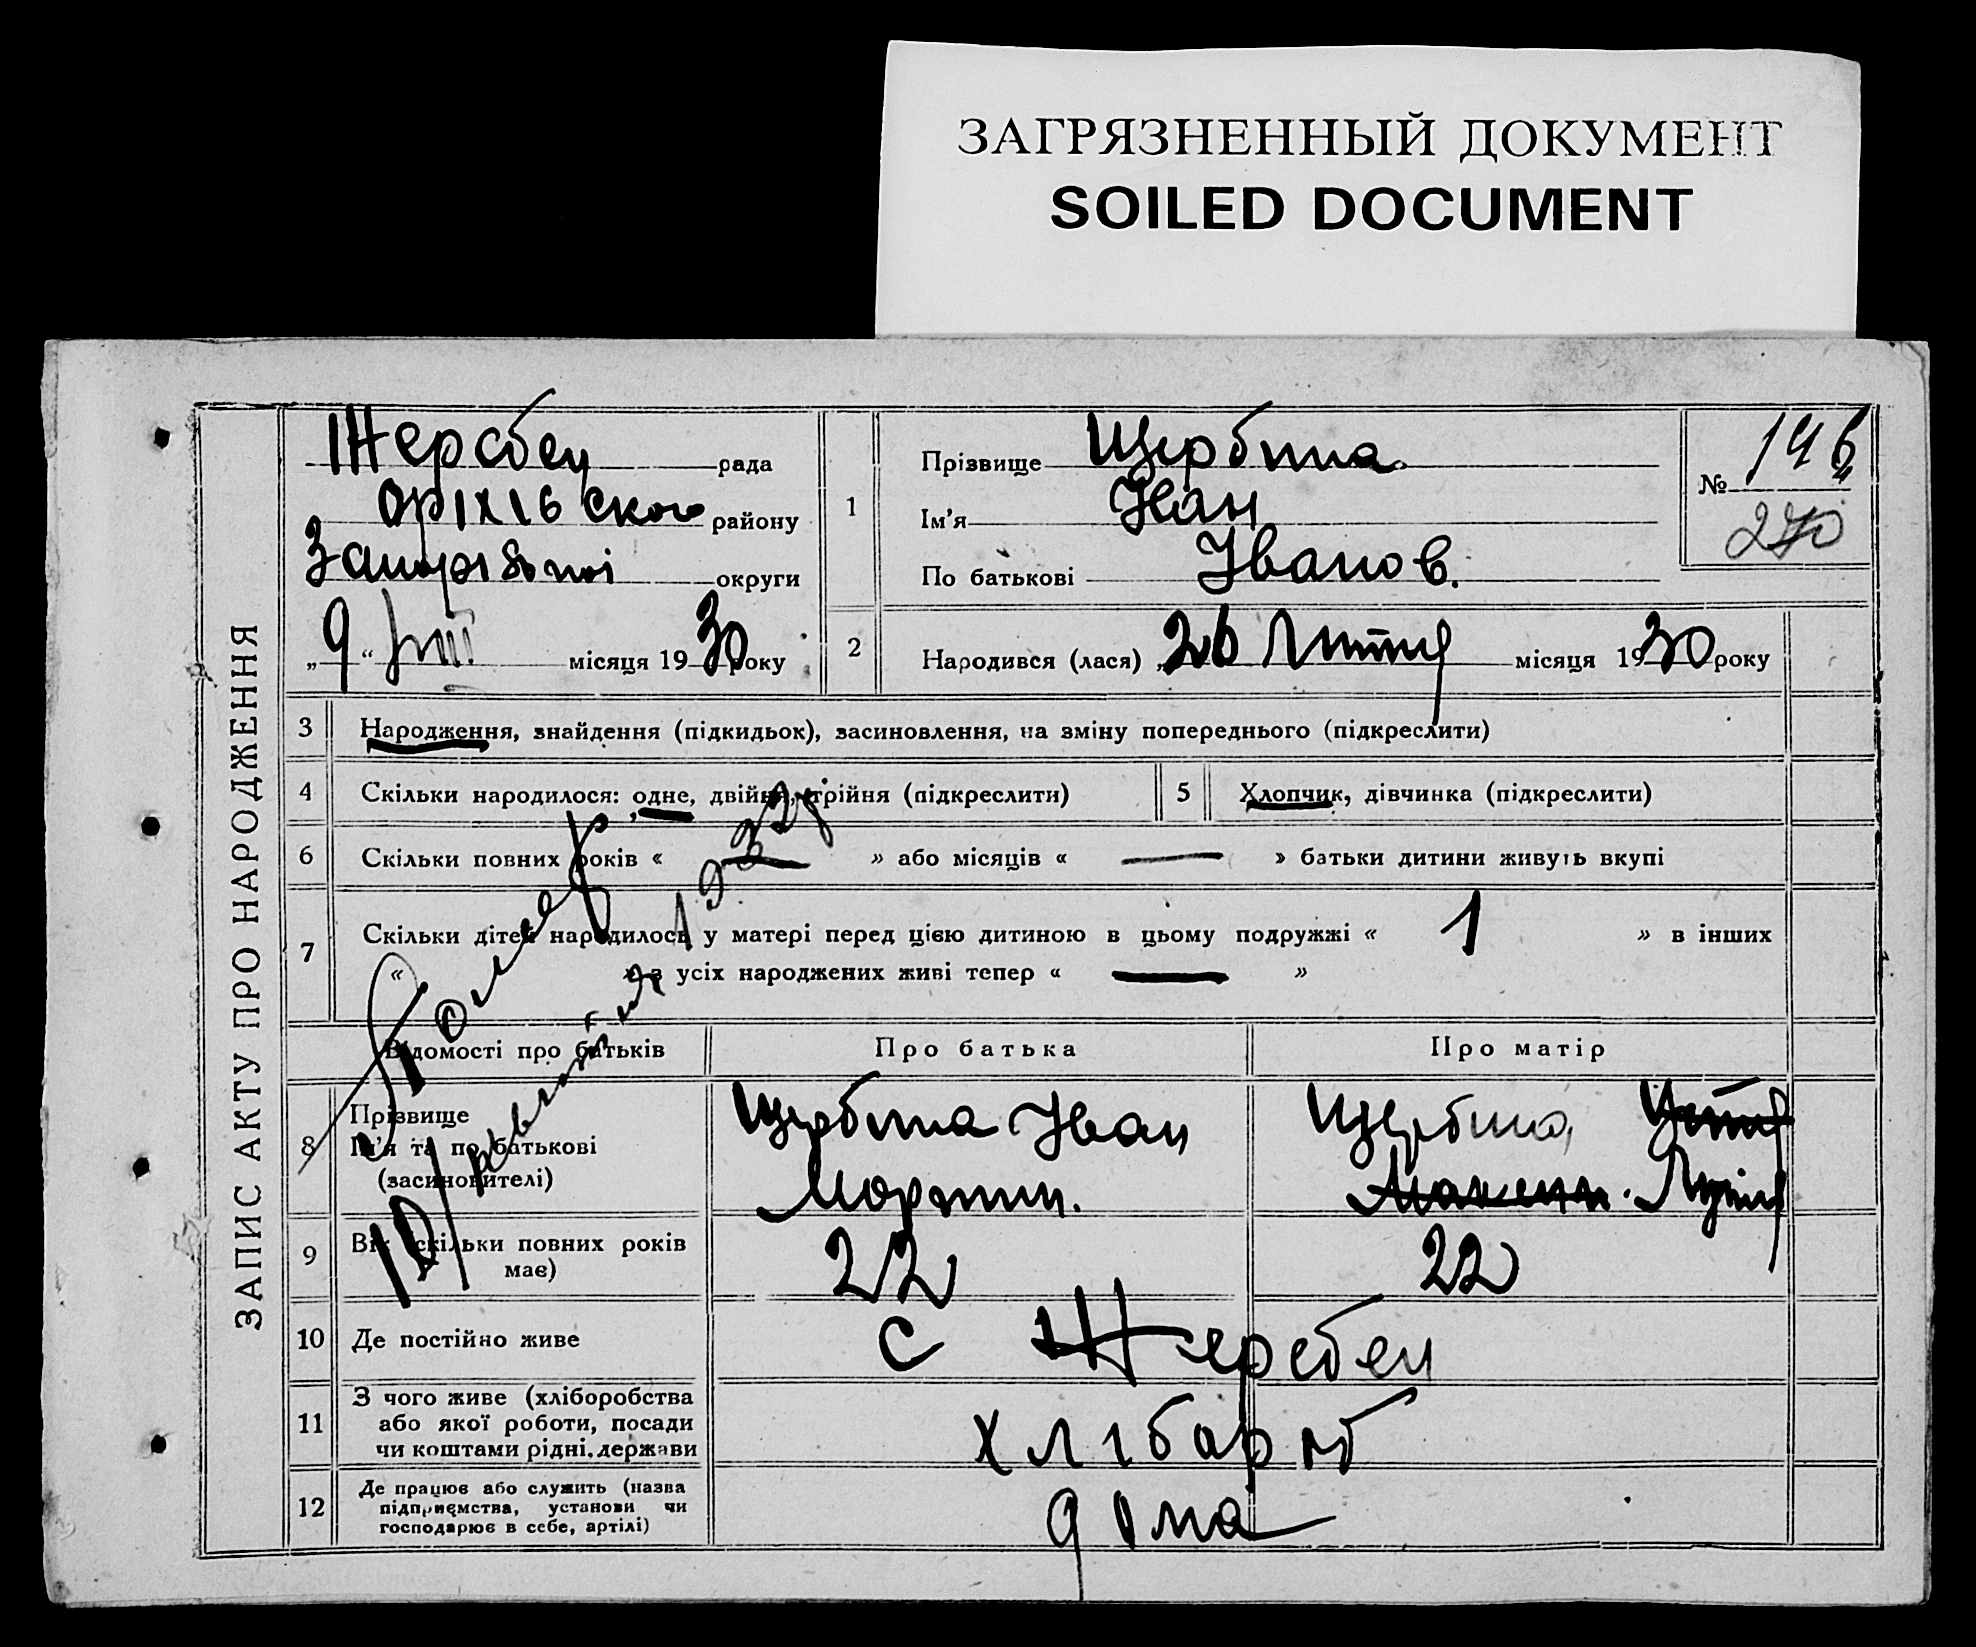 ЗАГРЯЗНЕННЫЙ ДОКУМЕНТ
SOILED DOCUMENT
ЗАПИС АКТУ ПРО НАРОДЖЕННЯ
Жеребец рада
Оріхівського району
округи
„9“ місяця 1930 року
1
Прізвище Щербина
Ім'я Іван
По батькові Іванов.
№ 146
270
2
Народився (лася) „26 Лютня місяця 1930 року
3 Народження, знайдення (підкидьок), засиновлення, на зміну попереднього (підкреслити)
4 Скільки народилося: одне, двійня, трійня (підкреслити)
5 Хлопчик, дівчинка (підкреслити)
6 Скільки повних років « — » або місяців « — » батьки дитини живуть вкупі
7 Скільки дітей народилось у матері перед цією дитиною в цьому подружжі « 1 » в інших
« » з усіх народжених живі тепер « — »
Помер
10/ 1932р
Відомості про батьків Про батька Про матір
8 Прізвище
Ім'я та по батькові
(засиновителі)
Щербина Іван
Мартин.
Щербина
9 Вік (скільки повних років
має)
22 22
10 Де постійно живе с Жеребец
11 З чого живе (хліборобства
або якої роботи, посади
чи коштами рідні, держави
хлібароб
12 Де працює або служить (назва
підприємства, установи чи
господарює в себе, артілі)
дома